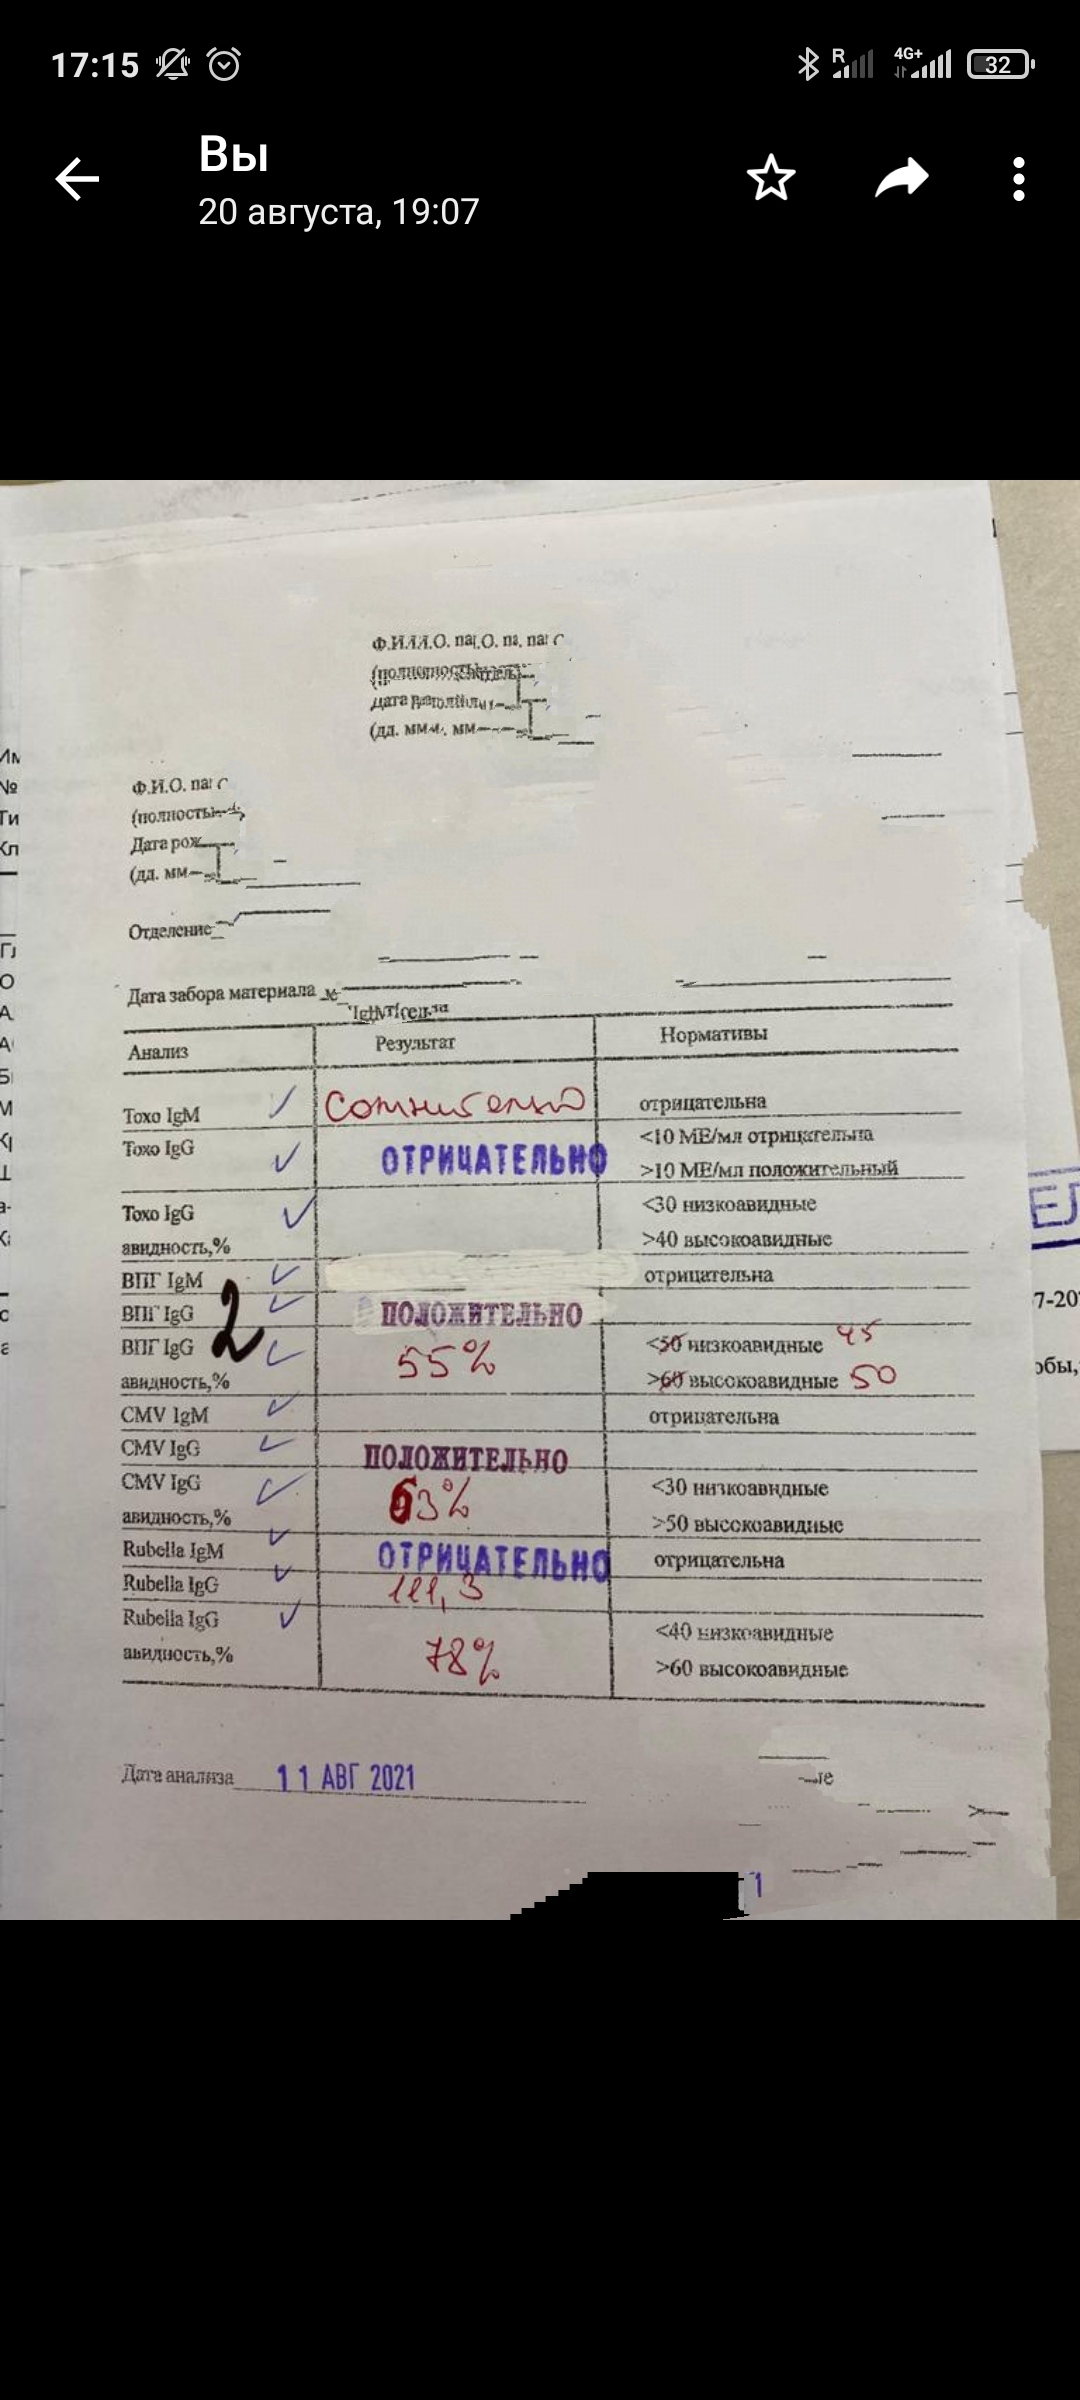 17:15
R
4G+
32
Вы
20 августа, 19:07
(дд. мм
Ф.И.О.
Дата рож
(дд. мм
Отделение
Дата забора материала
Анализ Результат Нормативы
Toxo IgM сомнительно отрицательна
Toxo IgG ОТРИЦАТЕЛЬНО <10 МЕ/мл отрицательна
>10 МЕ/мл положительный
Toxo IgG <30 низкоавидные
авидность,% >40 высокоавидные
ВПГ IgM отрицательна
ВПГ IgG 2 ПОЛОЖИТЕЛЬНО
ВПГ IgG 55% <50 низкоавидные 45
авидность,% >60 высокоавидные 50
CMV IgM отрицательна
CMV IgG ПОЛОЖИТЕЛЬНО
CMV IgG 63% <30 низкоавидные
авидность,% >50 высокоавидные
Rubella IgM ОТРИЦАТЕЛЬНО отрицательна
Rubella IgG 111,3
Rubella IgG 78% <40 низкоавидные
авидность,% >60 высокоавидные
Дата анализа 11 АВГ 2021
1